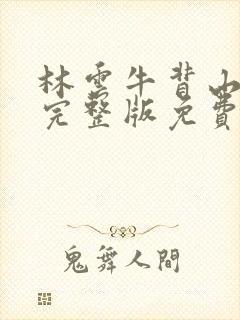 林雲牛背山
完整版免費
鬼舞人間